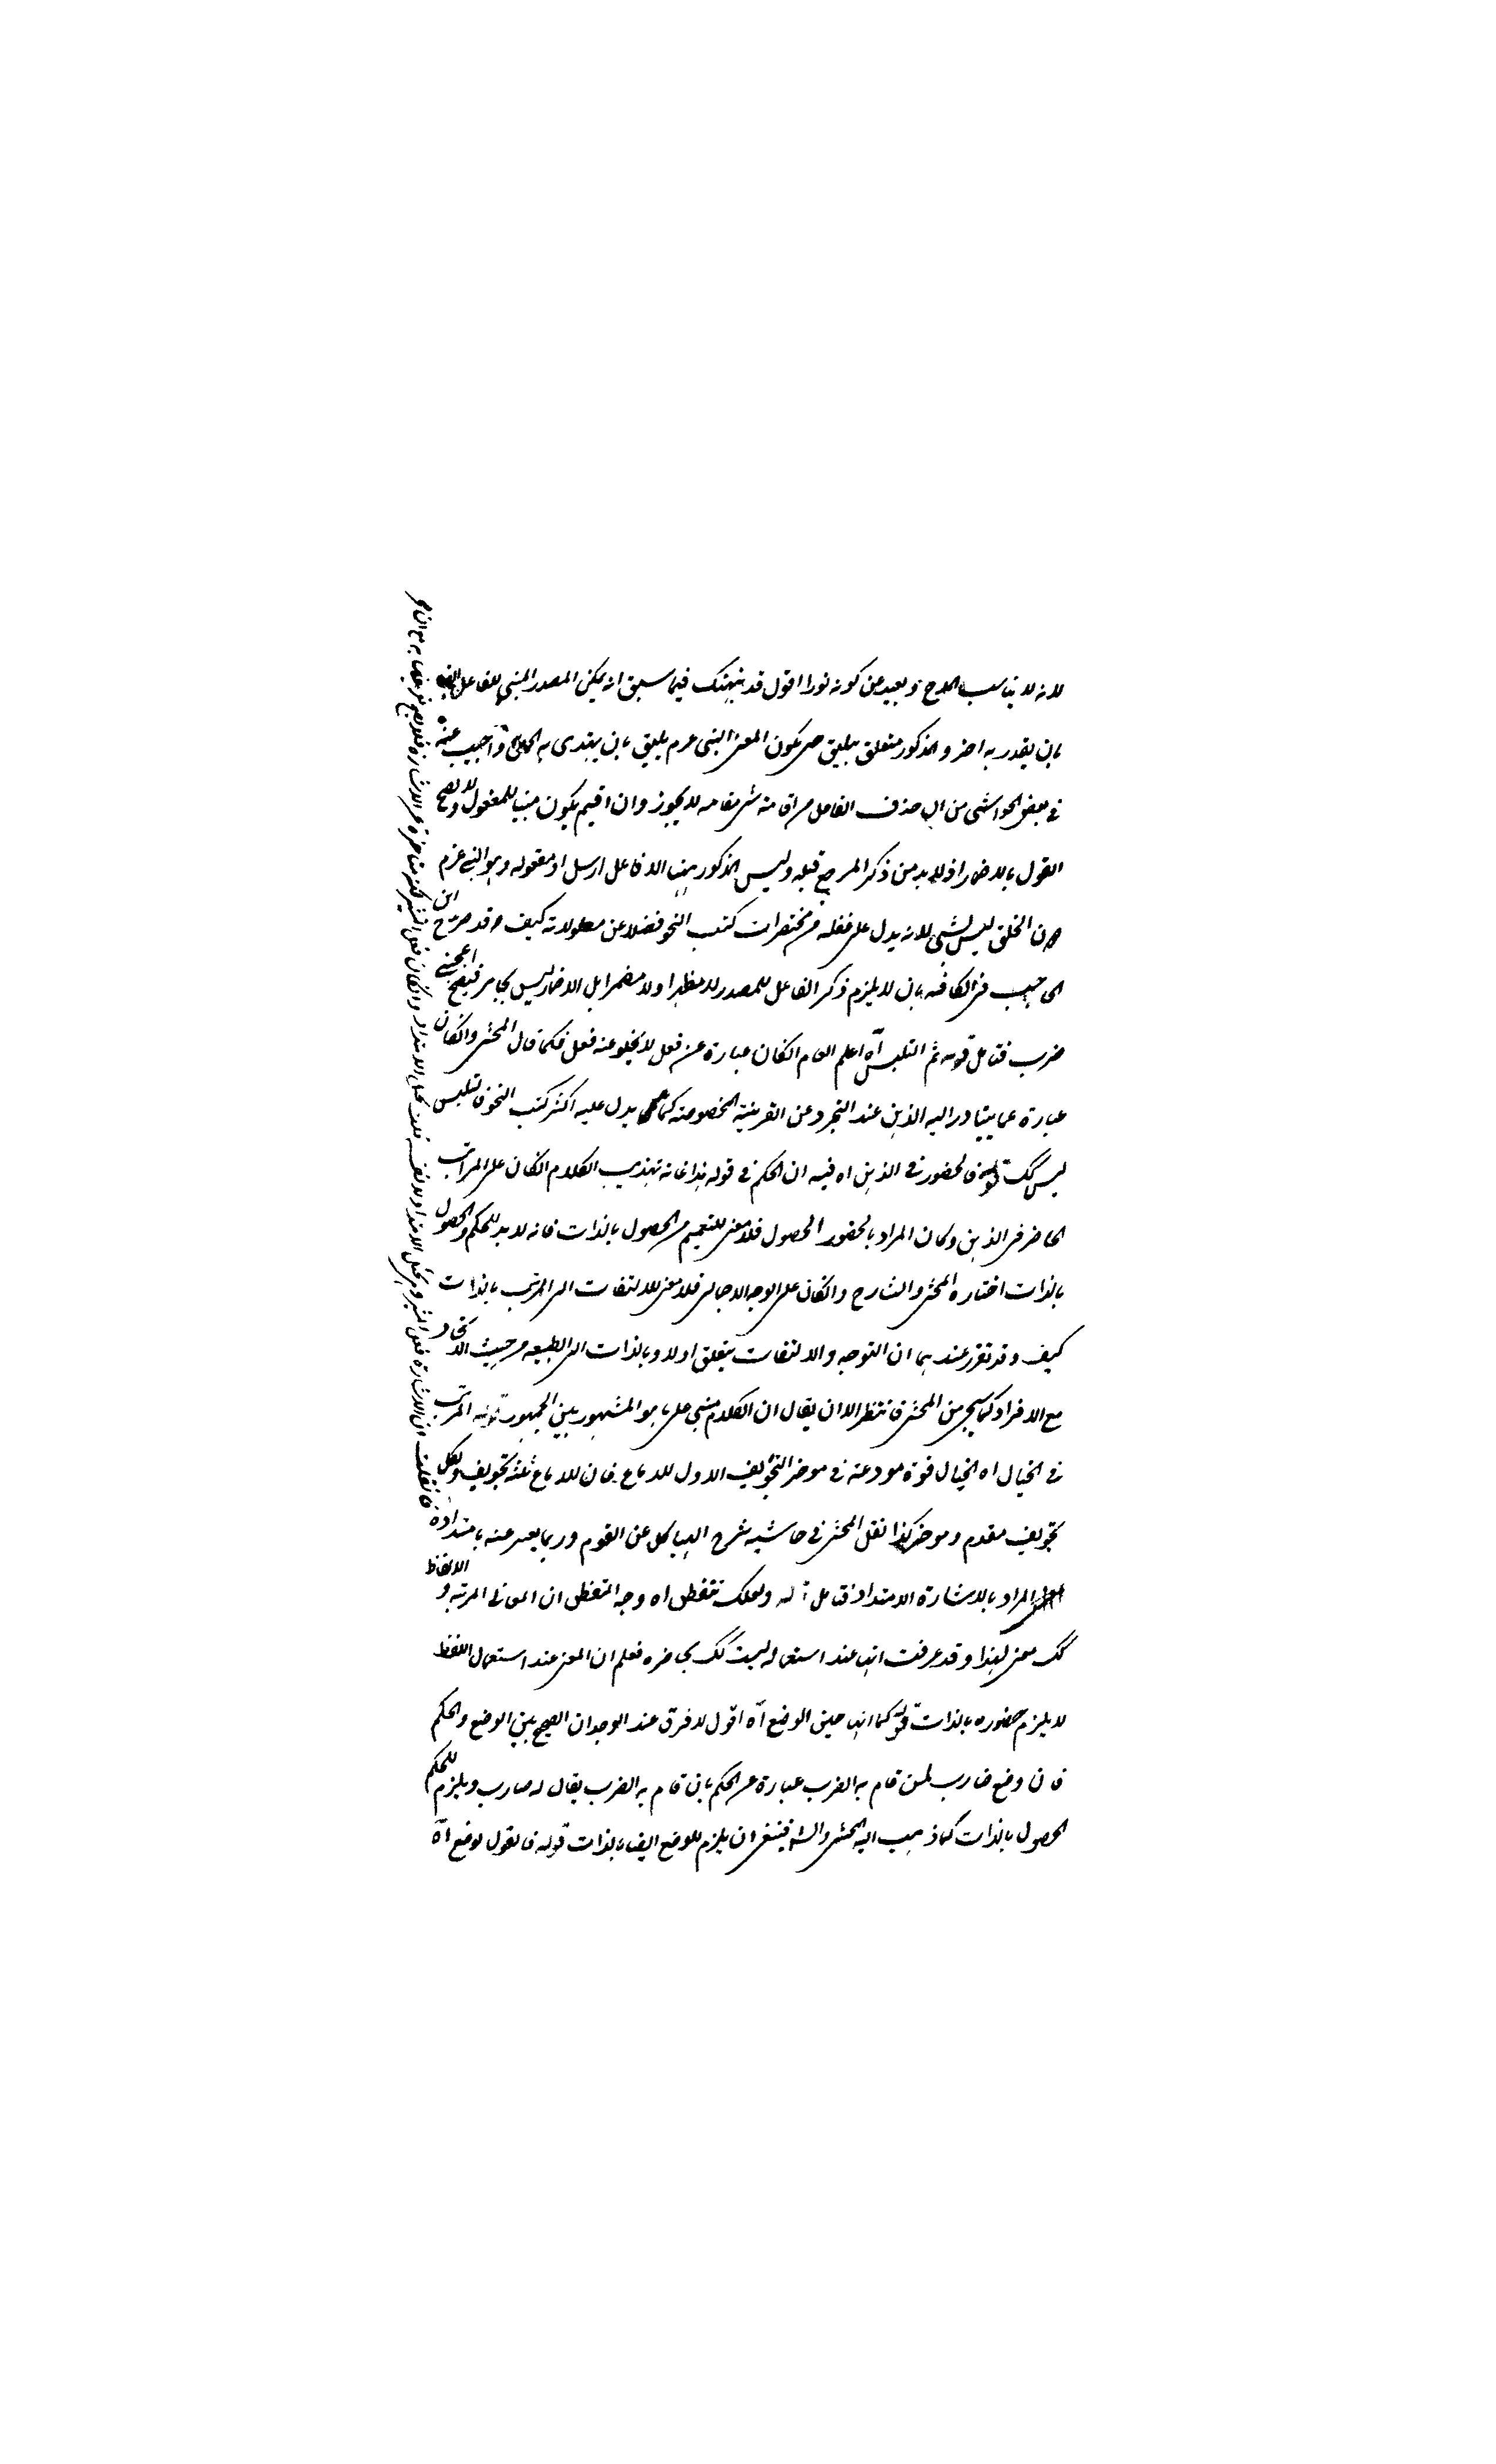 لانه لا يناسب المدح وبعيد عن كونه نورا اقول قد نبهتك فيما سبق انه يمكن المصدر المبني للفاعل
بان يقدر به اخر والمذكور متعلق بيليق حتى يكون المعنى النبي عرم يليق بان يقتدى به الخلائق واجيب عنه
في بعض الحواشي من ان حذف الفاعل مع اقامة شئ مقامه لا يجوز وان اقيم يكون مبنيا للمفعول ولا يصح
القول بالاضمار اذ لابد من ذكر المرجع قبله وليس المذكور ههنا الا فاعل ارسل او مفعوله وهو النبي عرم
دون الخلق ليس بشئ لانه يدل على غفله من مختصرات كتب النحو فضلا عن مطولاته كيف وقد صرح ابن
الحاجب في الكافيه بان لا يلزم ذكر الفاعل للمصدر لا مظهرا ولا مضمرا بل الاضمار ليس بجائز فيصح اعجبني
ضرب فتامل قوله ثم التلبس آه اعلم العام ان كان عبارة عن فعل لا يخلو عنه فعل فكما قال المحشي وان كان
عبارة عما يتبادر اليه الذهن عند التجرد عن القرينة المخصوصة كما يدل عليه اكثر كتب النحو فالتلبس
ليس كك قوله فالحضور في الذهن اه فيه ان الحكم في قوله هذا غاية تهذيب الكلام ان كان على المرتب
الحاضر في الذهن وكان المراد بالحضور الحصول فلا معنى للتعميم من الحصول بالذات فانه لا بد للحكم والحصول
بالذات اختاره المحشي والشارح وان كان على الوجه الاجمالي فلا معنى للالتفات الى المرتب بالذات
كيف وقد تقرر عندهما ان التوجه والالتفات يتعلق اولا وبالذات الى الطبيعه من حيث الاتحاد
مع الافراد كما سيجئ من المحشي فانتظر الا ان يقال ان الكلام مبني على ما هو المشهور بين الجمهور قوله المرتب
في الخيال اه الخيال قوة مودعة في موخر التجويف الاول للدماغ فان للدماغ ثلثة تجويف ولكل
تجويف مقدم وموخر كذا نقل المحشي في حاشيه شرح الهياكل عن القوم وربما يعبر عنه بامتداده
المراد بالاشارة الامتداد فتامل قوله ولعلك تتفطن اه وجه التفطن ان المعاني المرتبه والالفاظ
كك معنى لهذا وقد عرفت انها عند استعماله ليست كك بحاضره فعلم ان المعنى عند استعمال اللفظ
لا يلزم حضوره بالذات قوله كما انها حين الوضع آه اقول لا فرق عند الوجدان الصحيح بين الوضع والحكم
فان وضع ضارب لمن قام به الضرب عبارة عن الحكم بان قام به الضرب يقال له ضارب ويلزم للحكم
الحصول بالذات كما ذهب اليه المحشي والشه فينبغي ان يلزم للوضع ايضا بالذات قوله فانقول لوضع آه